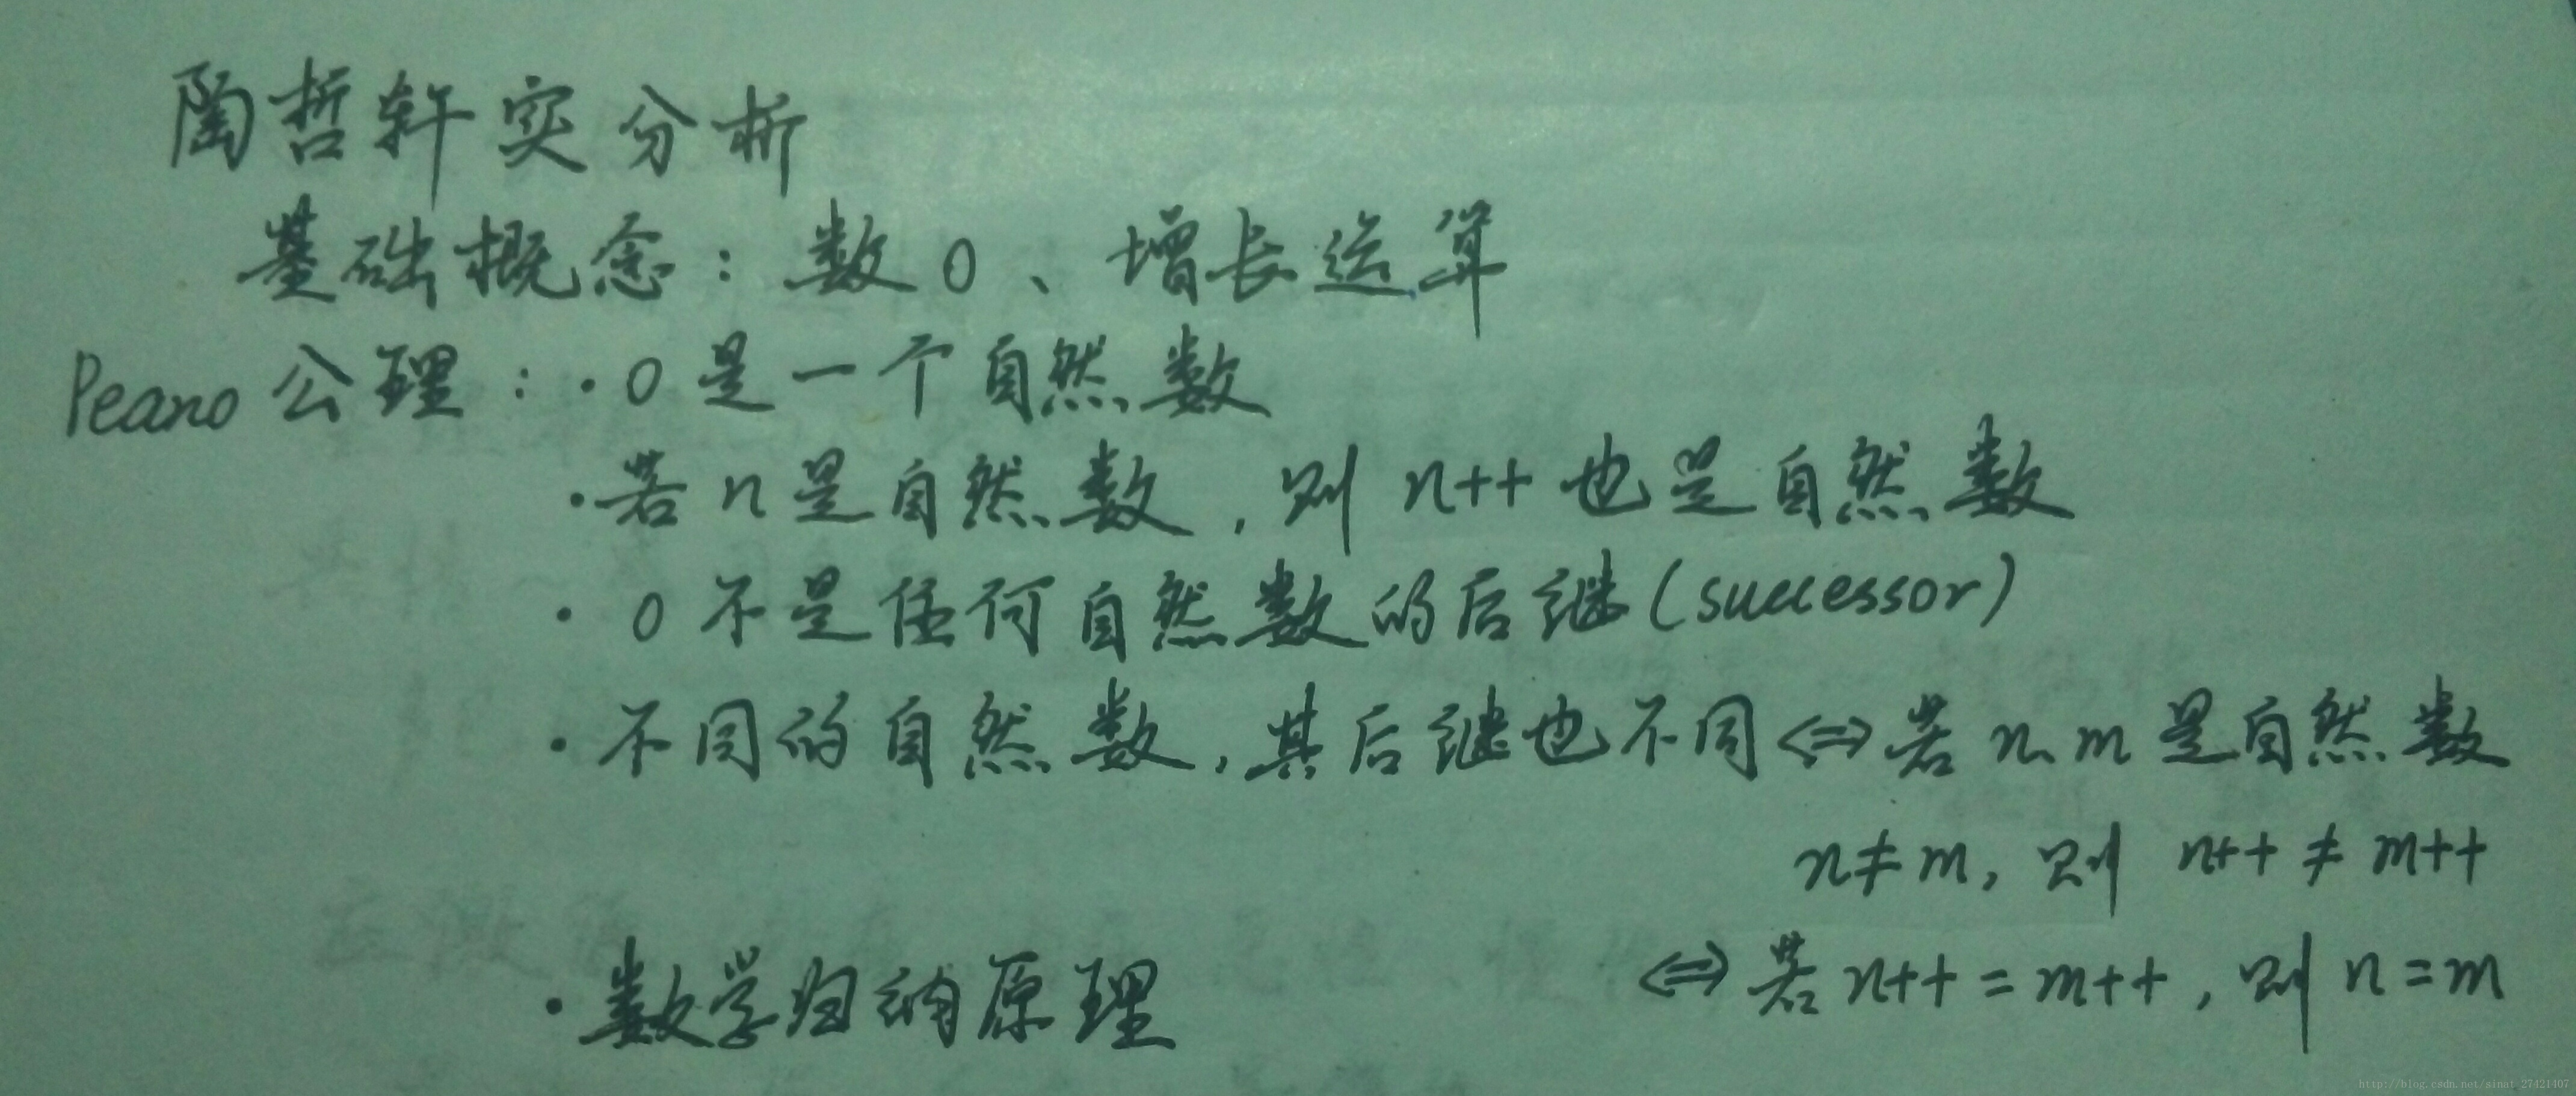 陶哲轩实分析
基础概念：数0、增长运算
Peano公理：·0是一个自然数
·若n是自然数，则 n++也是自然数
·0不是任何自然数的后继(successor)
·不同的自然数，其后继也不同⇔若n、m是自然数
n≠m，则 n++≠m++
⇔若n++=m++，则n=m
·数学归纳原理
http://blog.csdn.net/sinat_27421407